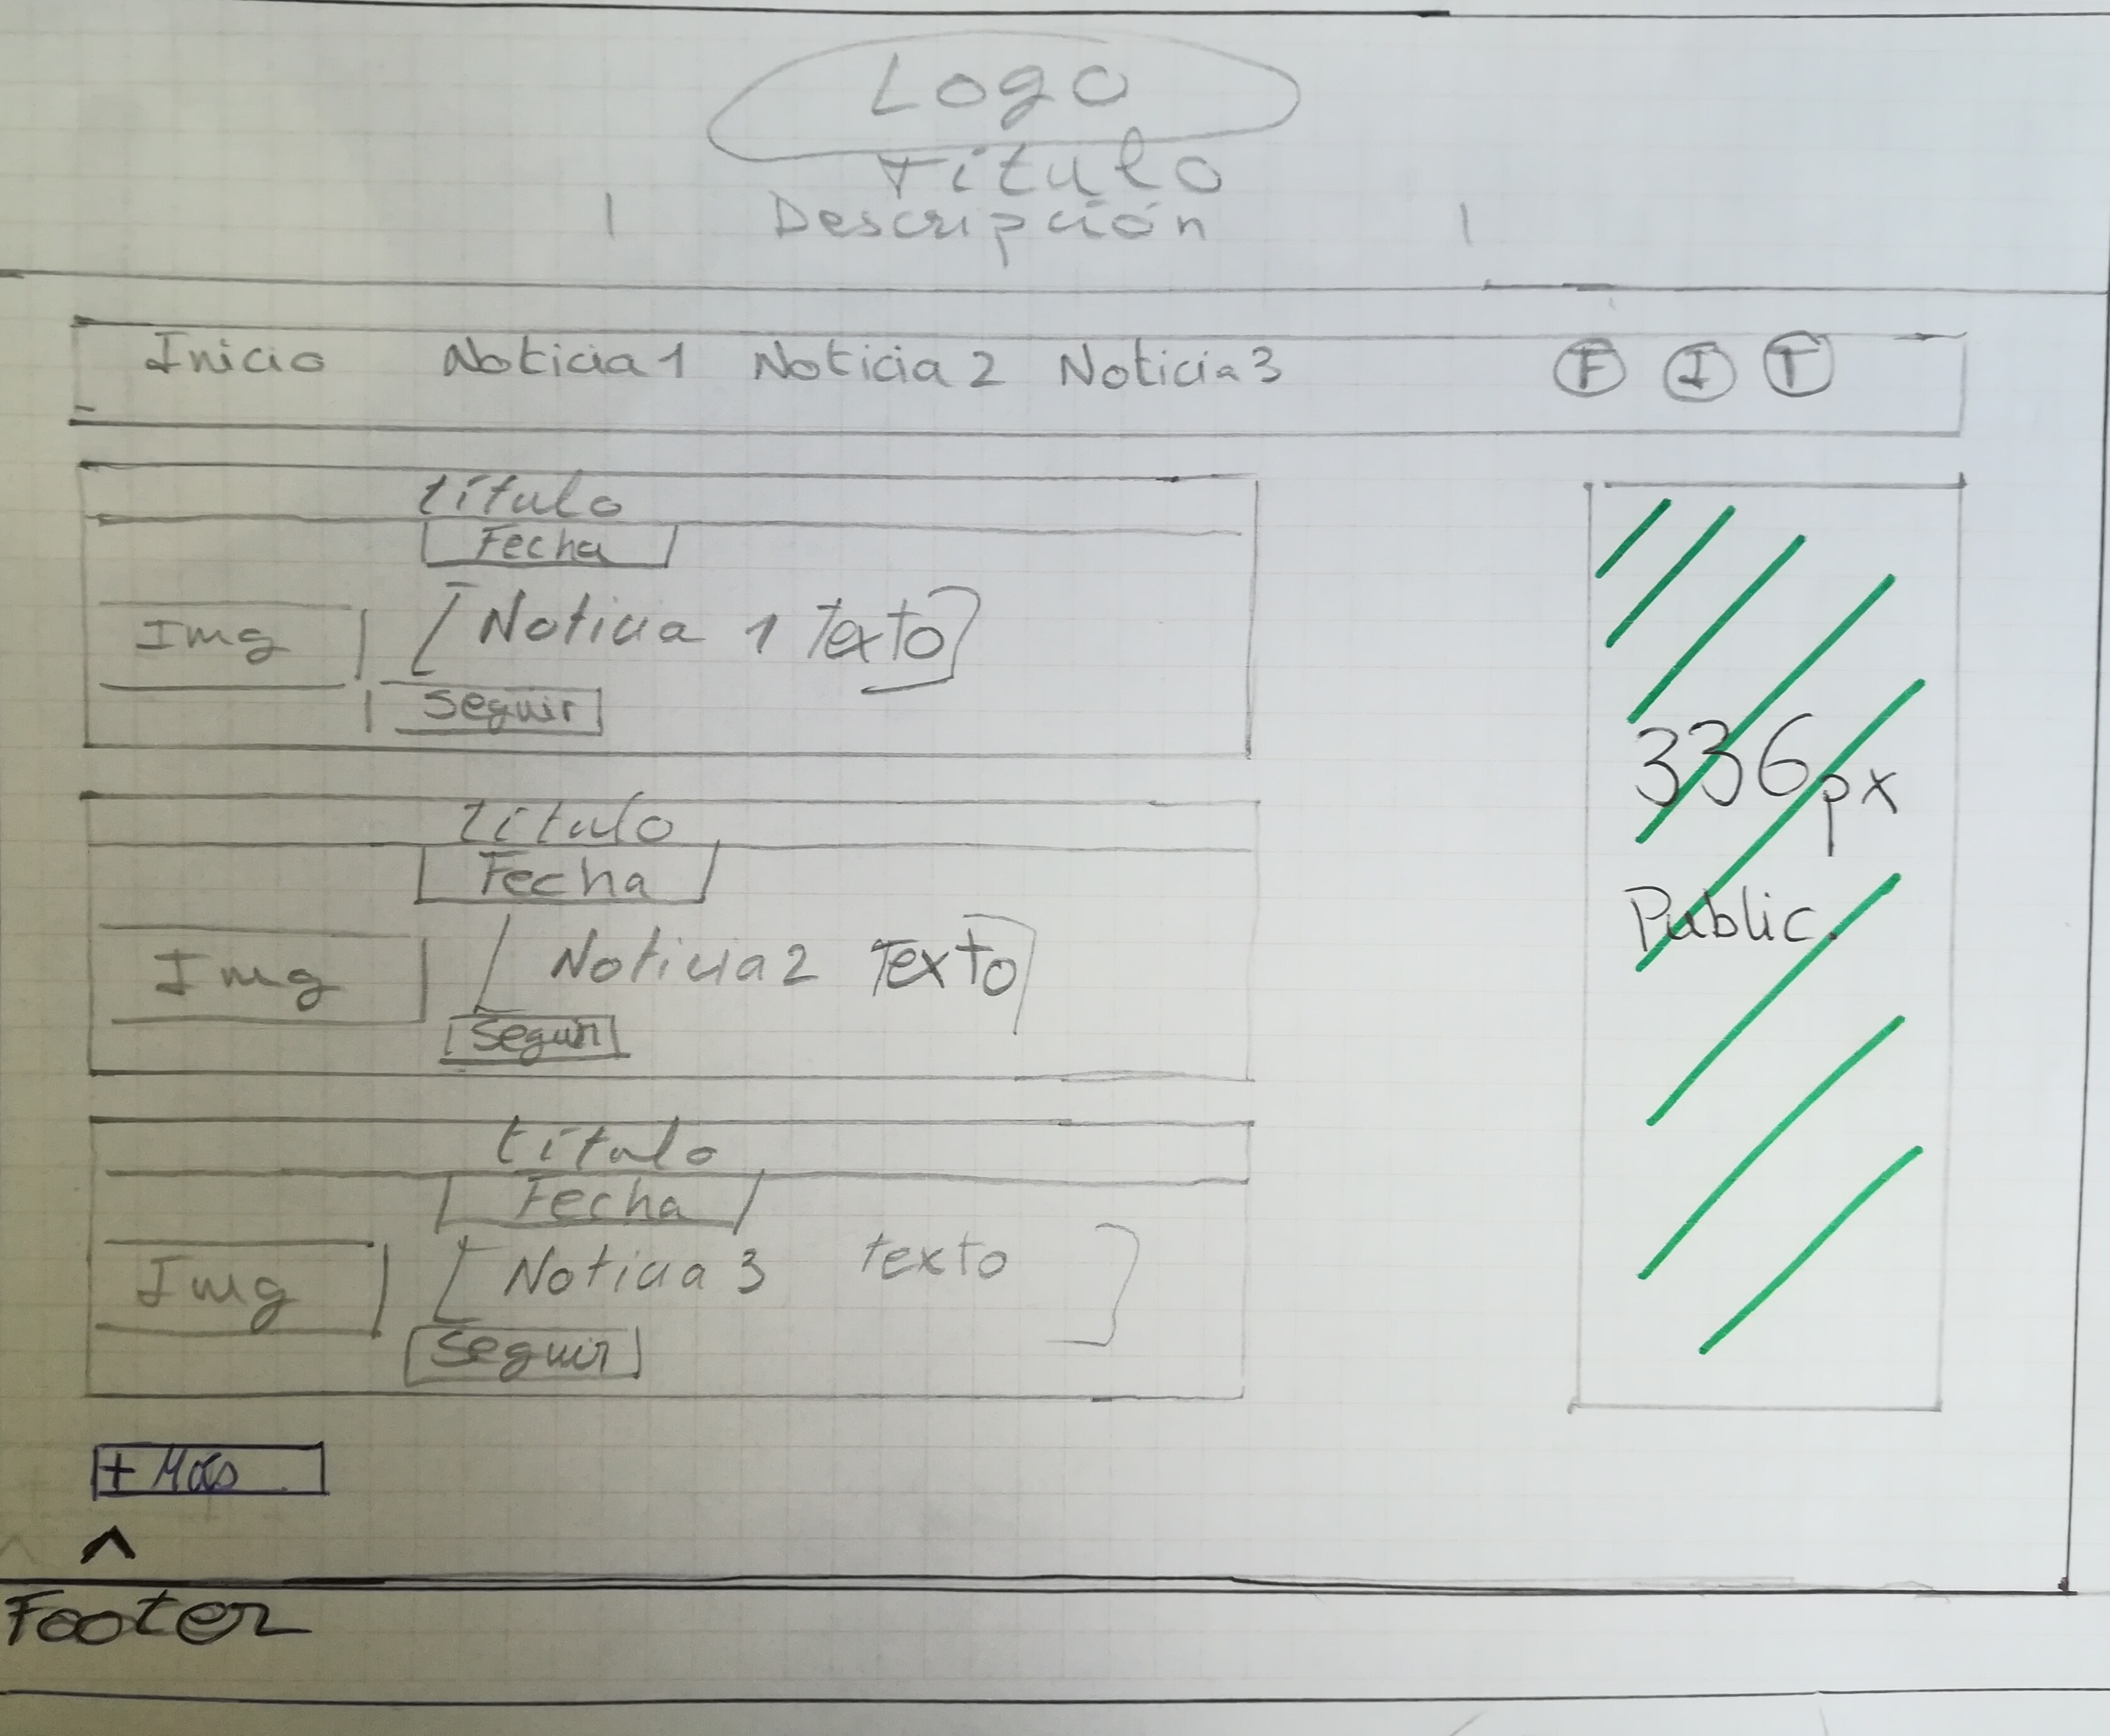 Logo
Título
Descripción
Inicio Noticia 1 Noticia 2 Noticia 3 F I T
título
Fecha
Img Noticia 1 Texto
Seguir
título
Fecha
Img Noticia 2 Texto
Seguir
título
Fecha
Img Noticia 3 texto
Seguir
336px
Public.
+ Más
Footer